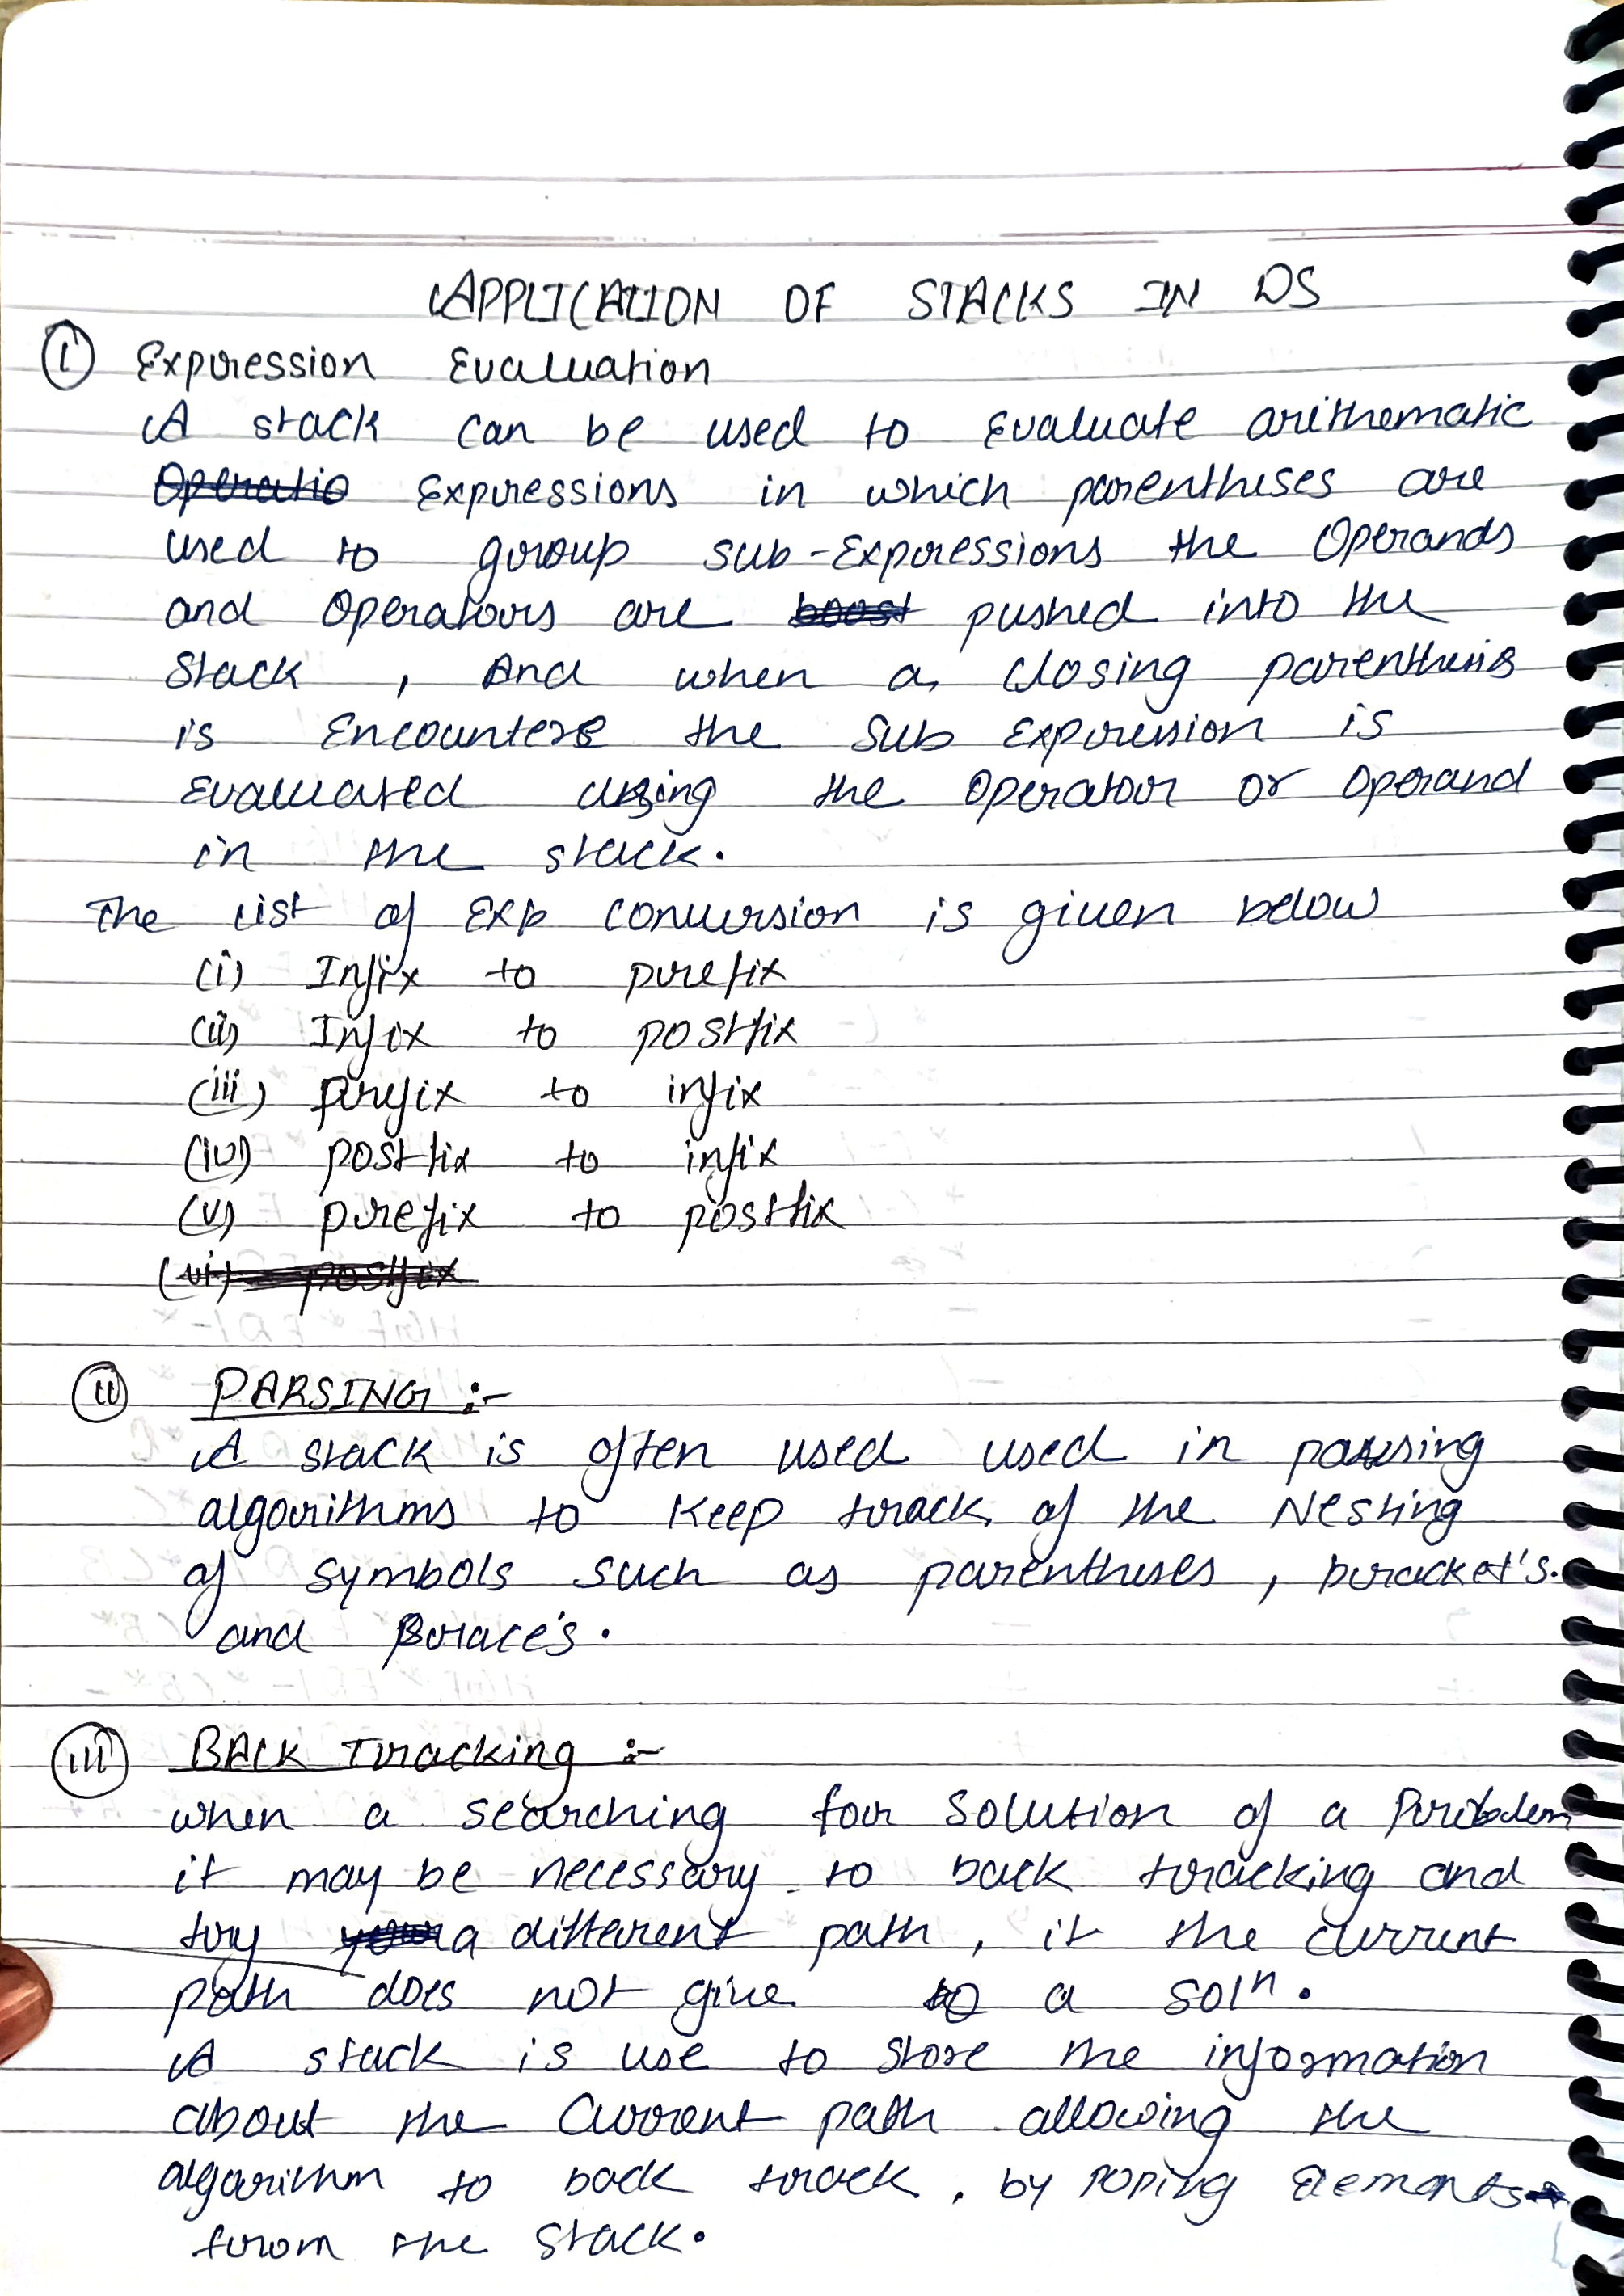 APPLICATION OF STACKS IN DS
(i) Expression Evaluation
A stack can be used to Evaluate arithematic
Operatio Expressions in which parentheses are
used to group sub-Expressions the Operands
and Operators are pushed into the
Stack , And when a closing parenthesis
is Encounters the Sub Expression is
Evaluated using the Operator or Operand
in the stack.
The list of Exp conversion is given below
(i) Infix to prefix
(ii) Infix to postfix
(iii) prefix to infix
(iv) postfix to infix
(v) prefix to postfix
(vi) postfix
(ii) PARSING :-
A stack is often used used in parsing
algorithms to Keep track of the Nesting
of symbols such as parentheses , bracket's.
and Brace's.
(iii) BACK Tracking :-
when a searching for solution of a Problem
it may be necessary to back tracking and
try a different path , if the current
path does not give to a solⁿ.
A stack is use to store the information
about the Current path allowing the
algorithm to back track . by poping Elements
from the stack.